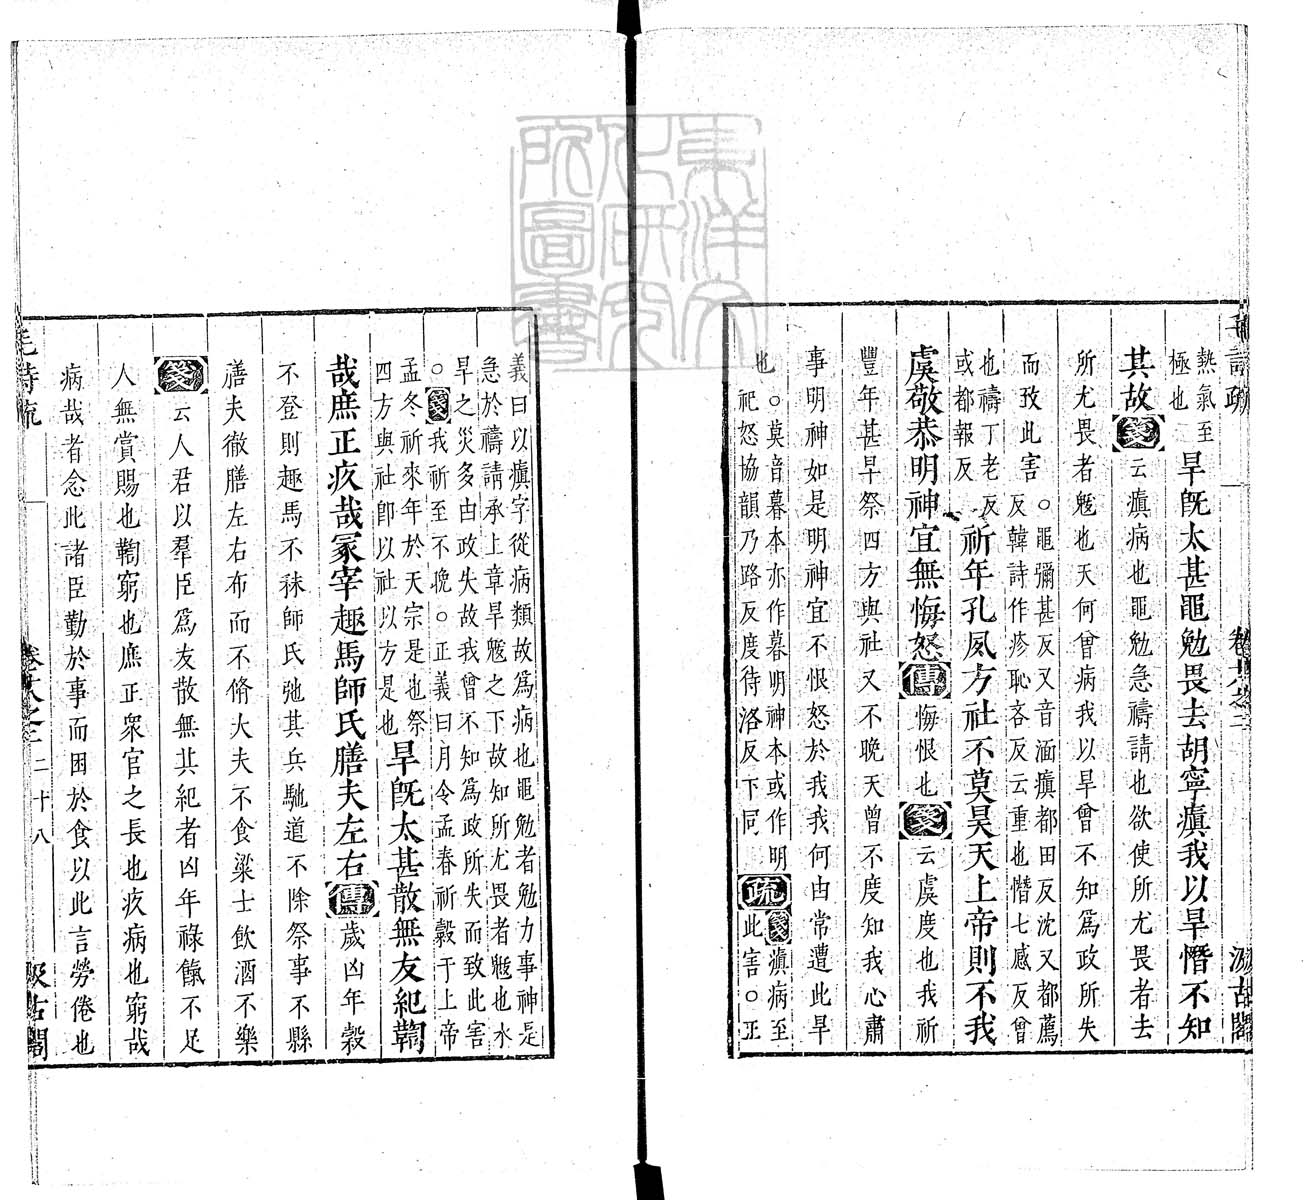 毛詩疏 卷十八之二 汲古閣
熱氣至
極也
旱旣太甚黽勉畏去胡寧瘨我以旱憯不知
其故箋云瘨病也黽勉急禱請也欲使所尤畏者去
所尤畏者魃也天何曾病我以旱曾不知爲政所失
而致此害
○黽彌甚反又音湎瘨都田反沈又都薦
反韓詩作疹恥吝反云重也憯七感反曾
也禱丁老反
或都報反
祈年孔夙方社不莫昊天上帝則不我
虞敬恭明神宜無悔怒傳悔恨也箋云虞度也我祈
豐年甚早祭四方與社又不晚天曾不度知我心肅
事明神如是明神宜不恨怒於我我何由常遭此旱
也
○莫音暮本亦作暮明神本或作明
祀怒協韻乃路反度待洛反下同
疏
箋瘨病至
此害○正
義曰以瘨字從病類故爲病也黽勉者勉力事神是
急於禱請承上章旱魃之下故知所尤畏者魃也水
旱之災多由政失故我曾不知爲政所失而致此害
○箋我祈至不晚○正義曰月令孟春祈穀于上帝
孟冬祈來年於天宗是也祭
四方與社卽以社以方是也
旱旣太甚散無友紀鞫
哉庶正疚哉冢宰趣馬師氏膳夫左右傳歲凶年穀
不登則趣馬不秣師氏弛其兵馳道不除祭事不縣
膳夫徹膳左右布而不脩大夫不食粱士飮酒不樂
箋云人君以羣臣爲友散無其紀者凶年祿餼不足
人無賞賜也鞫窮也庶正眾官之長也疚病也窮哉
病哉者念此諸臣勤於事而困於食以此言勞倦也
毛詩疏 卷十八之二 二十八 汲古閣
東洋文化研究所圖書